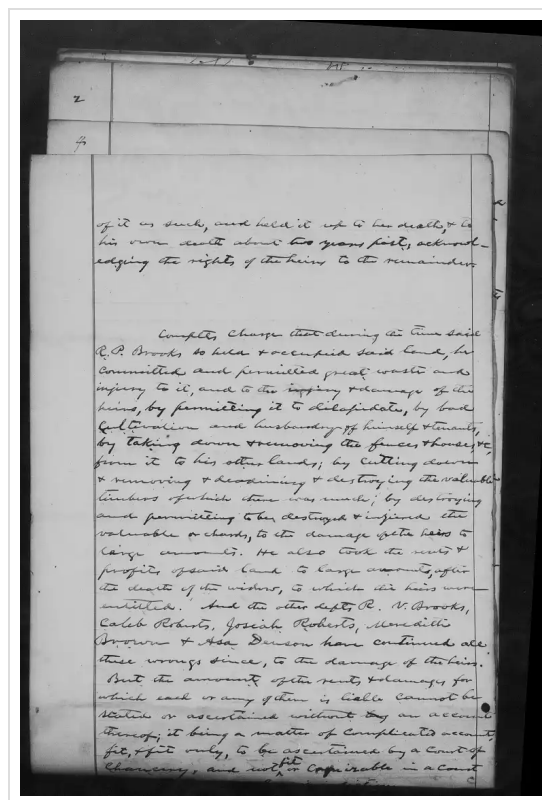 2
4
of it as such, and held it up to her death, & to
his own death about two years past, acknowl-
edging the rights of the heirs to the remainder.
Complts charge that during the time said
R. P. Brooks so held & occupied said land, he
committed and permitted great waste and
injury to it, and to the injury & damage of the
heirs, by permitting it to dilapidate, by bad
cultivation and husbandry of himself & tenants,
by taking down & removing the fences & houses, &c,
from it to his other lands; by cutting down
& removing & deadening & destroying the valuable
timbers of which there was much; by destroying
and permitting to be destroyed & injured the
valuable orchards, to the damage of the heirs to
large amounts. He also took the rents &
profits of said land to large amounts, after
the death of the widow, to which the heirs were
entitled. And the other defts, R. V. Brooks,
Caleb Roberts, Josiah Roberts, Meredith
Broown & Asa Denson have continued all
these wrongs since, to the damage of the heirs.
But the amounts of the rents, & damages for
which each or any of them is liable cannot be
stated or ascertained without an account
thereof; it being a matter of complicated account,
fit, & fit only, to be ascertained by a Court of
Chancery, and not fit or cognizable in a Court